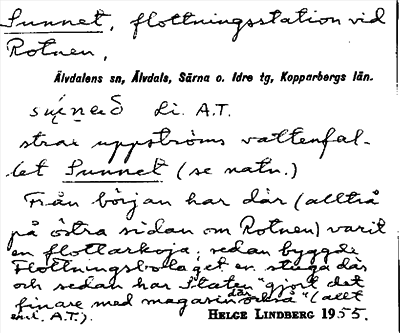 Sunnet, flottningsstation vid
Rotnen,
Älvdalens sn, Älvdals, Särna o. Idre tg, Kopparbergs län.
Li. A.T.
strax uppströms vattenfal-
let Sunnet (se natn.)
Från början har där (alltså
på östra sidan om Rotnen) varit
en flottarkoja; sedan byggde
Flottningsbolaget en stuga där
och sedan har Staten "gjort det
finare med magasin där också" (allt
enl. A.T.).
HELGE LINDBERG 1955.